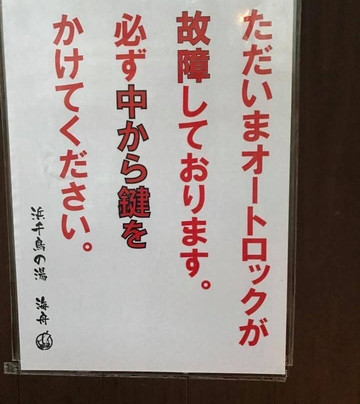 ただいまオートロックが
故障しております。
必ず中から鍵を
かけてください。
浜千鳥の湯 海舟